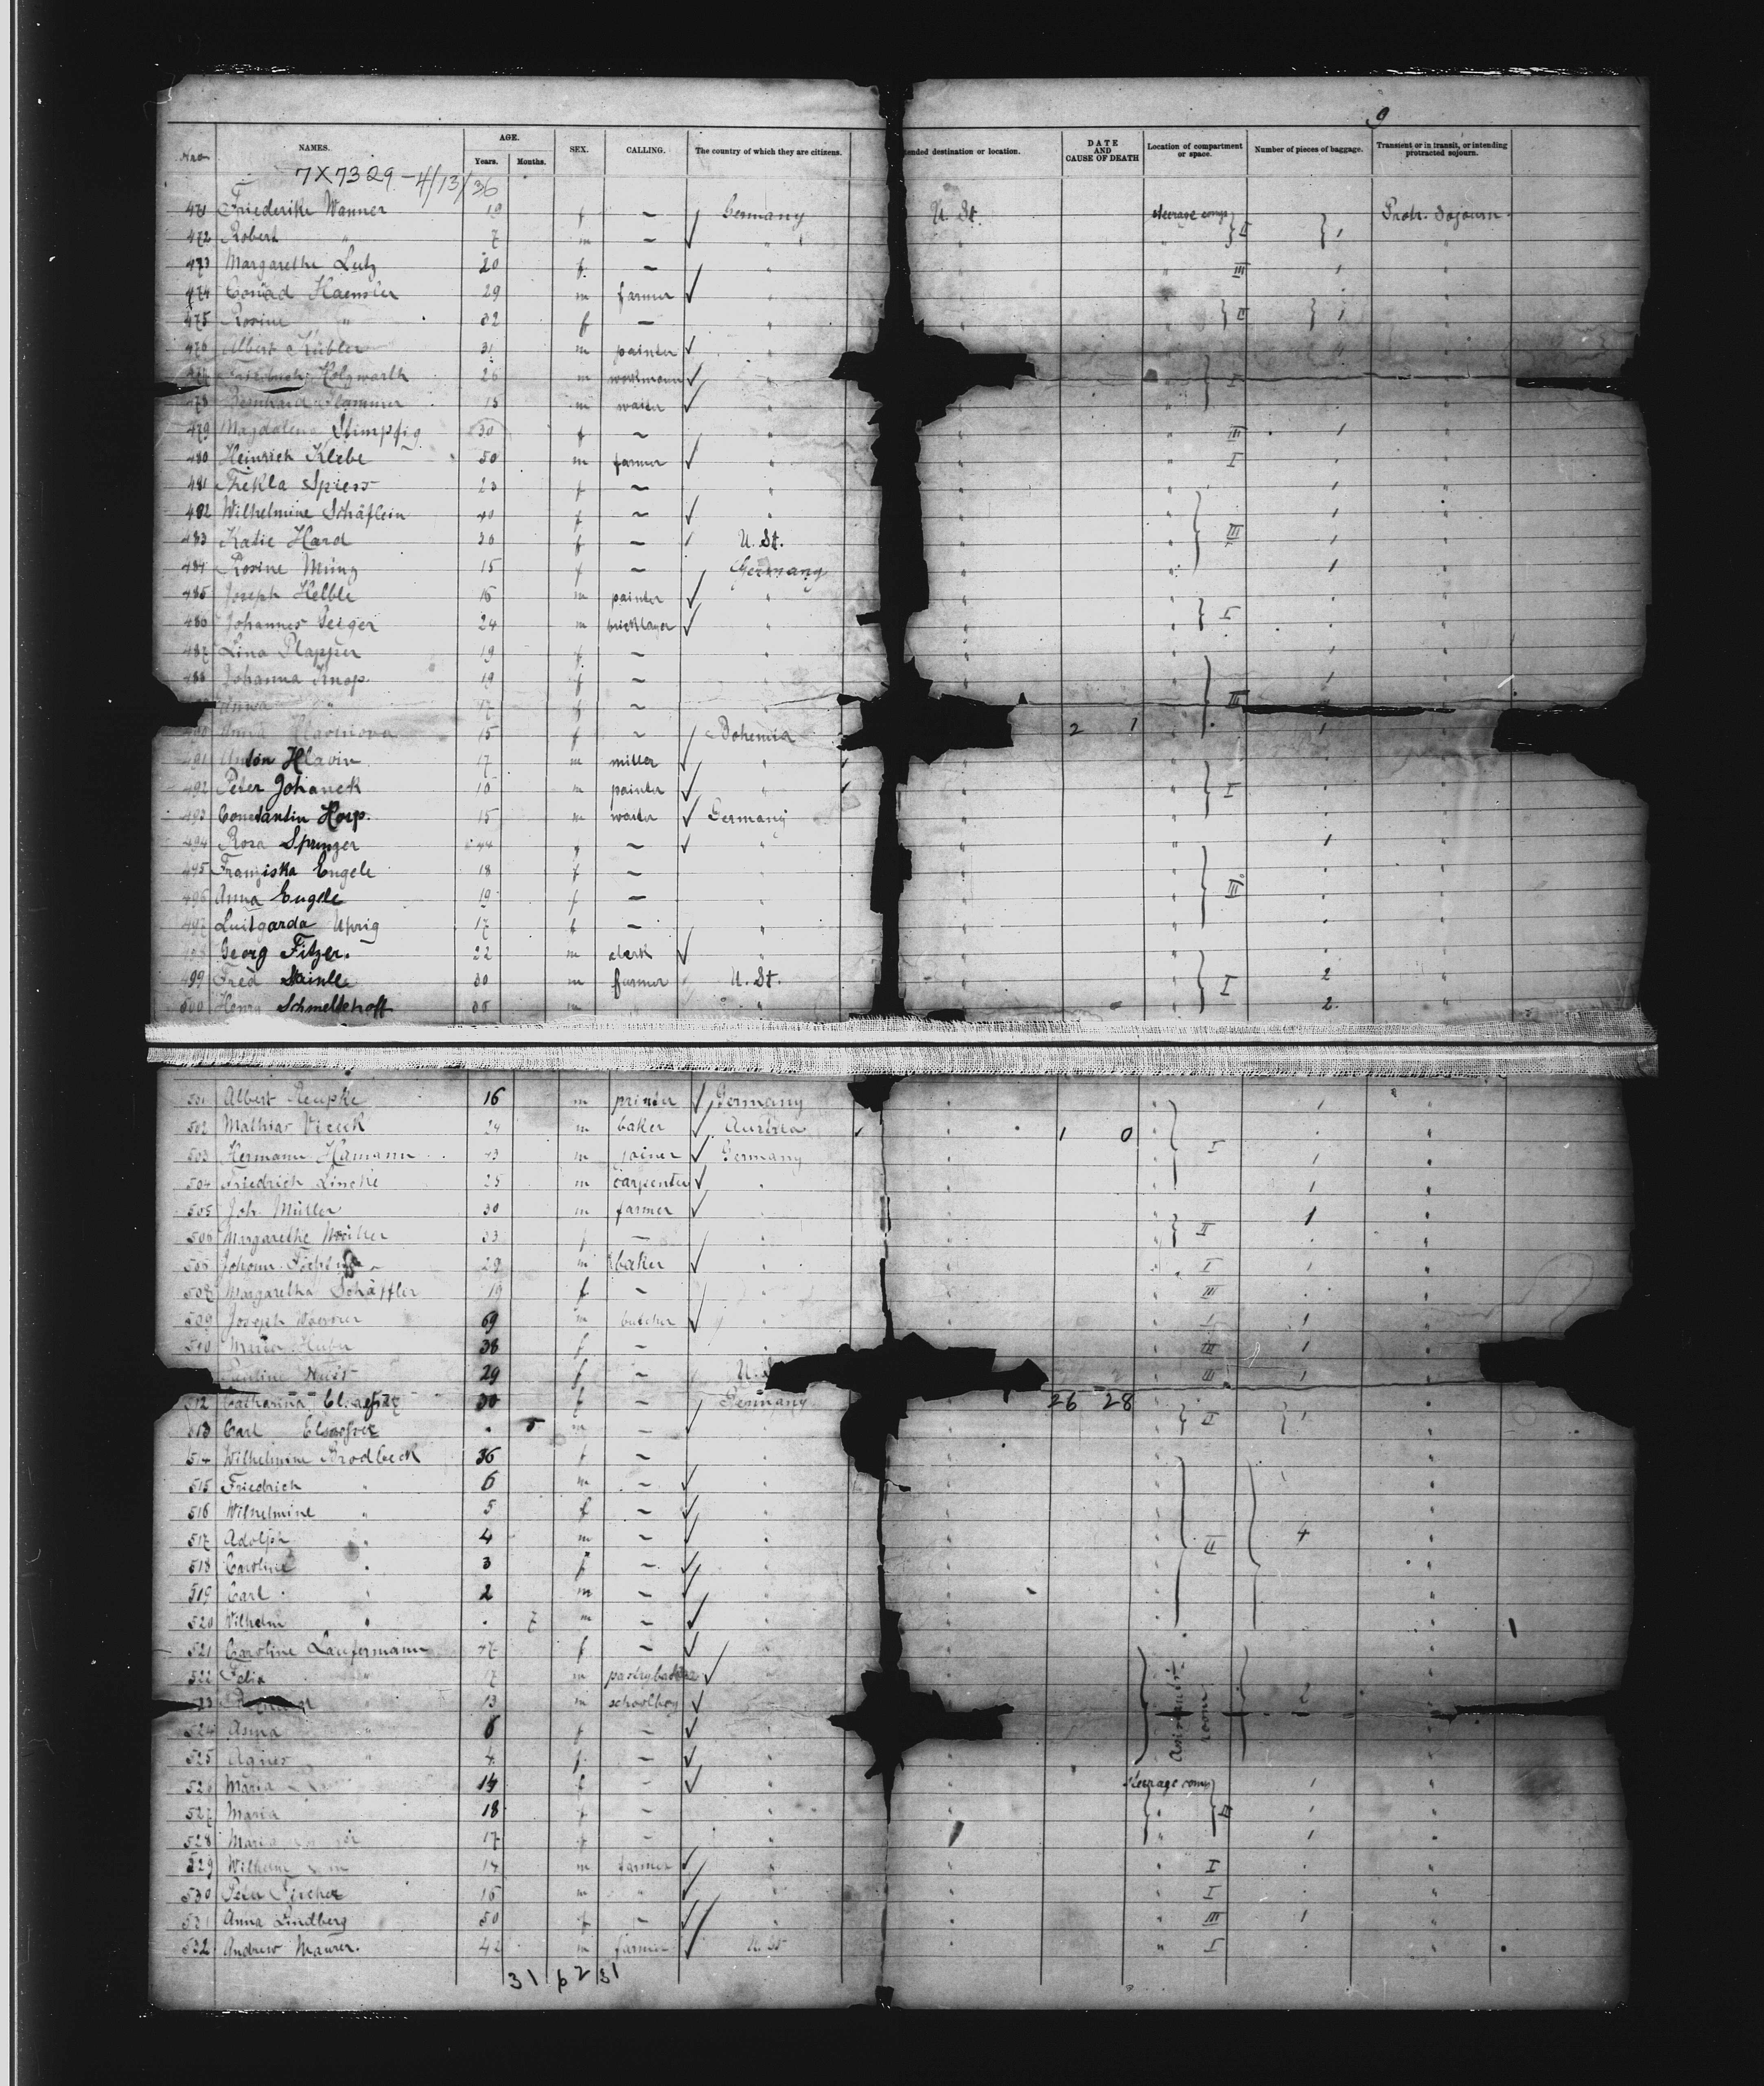 9
No NAMES. AGE. Years. Months. SEX. CALLING. The country of which they are citizens. ended destination or location. DATE AND CAUSE OF DEATH Location of compartment or space. Number of pieces of baggage. Transient or in transit, or intending protracted sojourn.
7X7329-4/13/36
471 Friederike Wanner 19 f ~ Germany U. St. steerage comp II 1 Protr. Sojourn
472 Robert " 7 m ~ " " " "
473 Margarethe Lutz 20 f. ~ " " " III 1 "
474 29 m farmer " " " II 1 "
475 Rosine " 32 f ~ " " " "
476 Albert Kübler 31 m painter " " "
Holzwarth 26 m workmann " I
478 15 m waiter " " " "
479 Magdalena Stimpfig 30 f ~ " " " III 1 "
480 Heinrich Klebe 50 m farmer " " " I "
481 Thekla Spiess 23 f ~ " " " 1 "
482 Wilhelmine Schäflein 40 f ~ " " " III 1 "
483 Katie Hard 30 f ~ U. St. " " 1 "
484 Rosine Münz 15 f ~ Germany " " 1 "
485 Joseph Helble 16 m painter " " " I "
486 Johannes Seiger 24 m bricklayer " " " "
487 Lina Plapper 19 f ~ " " " 1 "
488 Johanna Knop. 19 f ~ " " " III 1 "
Anna " 17 f ~ "
Anna Hlavinova 15 f ~ Bohemia 2 1 " 1
491 Anton Hlavin 17 m miller " " " I "
492 Peter Johanek 10 m painter " " " "
493 Constantin Horp. 15 m waiter Germany " " "
494 Rosa Springer 44 f ~ " " " III 1 "
495 Franziska Engele 18 f ~ " " " "
496 Anna Engele 19 f ~ " " " "
497 Luitgarda Uhrig 17 f ~ " " " "
Georg Fitzer. 22 m clerk " " " I "
499 Fred 30 m farmer U. St. " " 2 "
500 Henry Schmeltehoff 35 m " " " " 2 "
501 Albert Reupke 16 m printer Germany " " I 1 "
502 Mathias 24 m baker Austria " 1 0 " "
503 Hermann Hamann 43 m joiner Germany " " 1 "
504 Friedrich Lincke 25 m carpenter " " " 1 "
505 Joh. Müller 30 m farmer " " " II 1 "
506 Margarethe Müller 33 f ~ " " " "
Johann 29 m baker " " " I 1 "
508 Margaretha Schäffler 19 f ~ " " " III "
509 Joseph Woerner 69 m butcher " " " I 1 "
510 Maria Huber 38 f ~ " " III 1 "
Pauline 29 f ~ U. S " III 1 "
512 Catharina 30 f ~ Germany 26 28 " II 1 "
513 Carl 5 m ~ " " " "
514 Wilhelmine Brodbeck 36 f ~ " " " II 4 "
515 Friedrich " 6 m ~ " " " "
516 Wilhelmine " 5 f ~ " " " "
517 Adolph " 4 m ~ " " " "
518 Caroline " 3 f ~ " " " "
519 Carl " 2 m ~ " " " "
520 Wilhelm " 7 m ~ " " " "
521 Caroline Laufermann 47 f ~ " " Assistant's room 2 "
522 Felix " 17 m pastrybaker " " "
13 m schoolboy
524 Anna " 6 f ~ " "
525 Agnes " 4 f. ~ " " "
526 Maria 14 f ~ " " steerage comp III 1 "
527 Maria 18 f ~ " " 1 "
528 Maria 17 f ~ " " " 1 "
529 Wilhelm 17 m farmer " " " I "
530 Peter Fircher 16 m " " " " I "
531 Anna Lindberg 50 f ~ " " " III 1 "
532 Andrew Maurer. 42 m farmer U. St " " I "
31 62 31